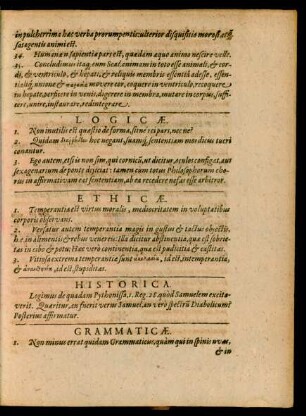 in pulcherrima hæc verba prorumpentis: ulterior disquisitio morosi, at
satagentis animi est.
34. Humanam sapientia pars est, quædam æquo animo nescire velle.
35. Concludimus itaq; cum Scal. animam in toto esse animali, & cor-
di, & ventriculo, & hepate, & reliquis membris essentiâ adesse, essen-
tialiq; unione movere cor, coquere in ventriculo, recoquere
in hepate, perficere in venis, digerere in membra, mutare in corpus, suffi-
cere, unire, instaurare, redintegrare.
LOGICÆ
1. Non inutilis est quæstio de forma, sitne rei pars, nec ne?
2. Quidam hoc negant, suamq; sententiam mordicus tueri
conantur.
3. Ego autem, etsi is non sim, qui cornicû, ut dicitur, oculos configat, aut
sexagenarium de ponte dejiciat: tamen cum totus Philosophorum cho-
rus in affirmativam eat sententiam, ab ea recedere nefas esse arbitror.
ETHICÆ
1. Temperantia est virtus moralis, mediocritatem in voluptatibus
corporis observans.
2. Versatur autem temperantia magis in gustus & tactus objectis,
h.e. in alimentis & rebus venereis. Illa dicitur abstinentia, quæ est sobrie-
tas in cibo & potu: Hæc verò continentia, quæ est pudicitia & castitas.
3. Vitiosa extrema temperantiæ sunt ἀκολασία, id est, intemperantia,
& ἀναισθησία, id est, stupiditas.
HISTORICA
Legimus de quadam Pythonissa, 1. Reg. 28. quod Samuelem excita-
verit. Quæritur, an fuerit verus Samuel, an verò spectrû Diabolicum?
Posterius affirmatur.
GRAMMATICÆ
1. Non minus errat quidam Grammaticus, quàm qui in spinis uvas,
& in